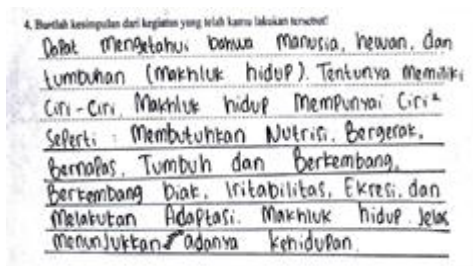 4. Buatlah kesimpulan dari kegiatan yang telah kamu lakukan tersebut!
Dapat mengetahui bahwa manusia, hewan, dan
tumbuhan (makhluk hidup). Tentunya memiliki
Ciri-Ciri. Makhluk hidup mempunyai Ciri²
Seperti : Membutuhkan Nutrisi, Bergerak,
Bernapas, Tumbuh dan Berkembang,
Berkembang biak, Iritabilitas, Ekresi, dan
Melakukan Adaptasi. Makhluk hidup Jelas
menunjukkan adanya kehidupan